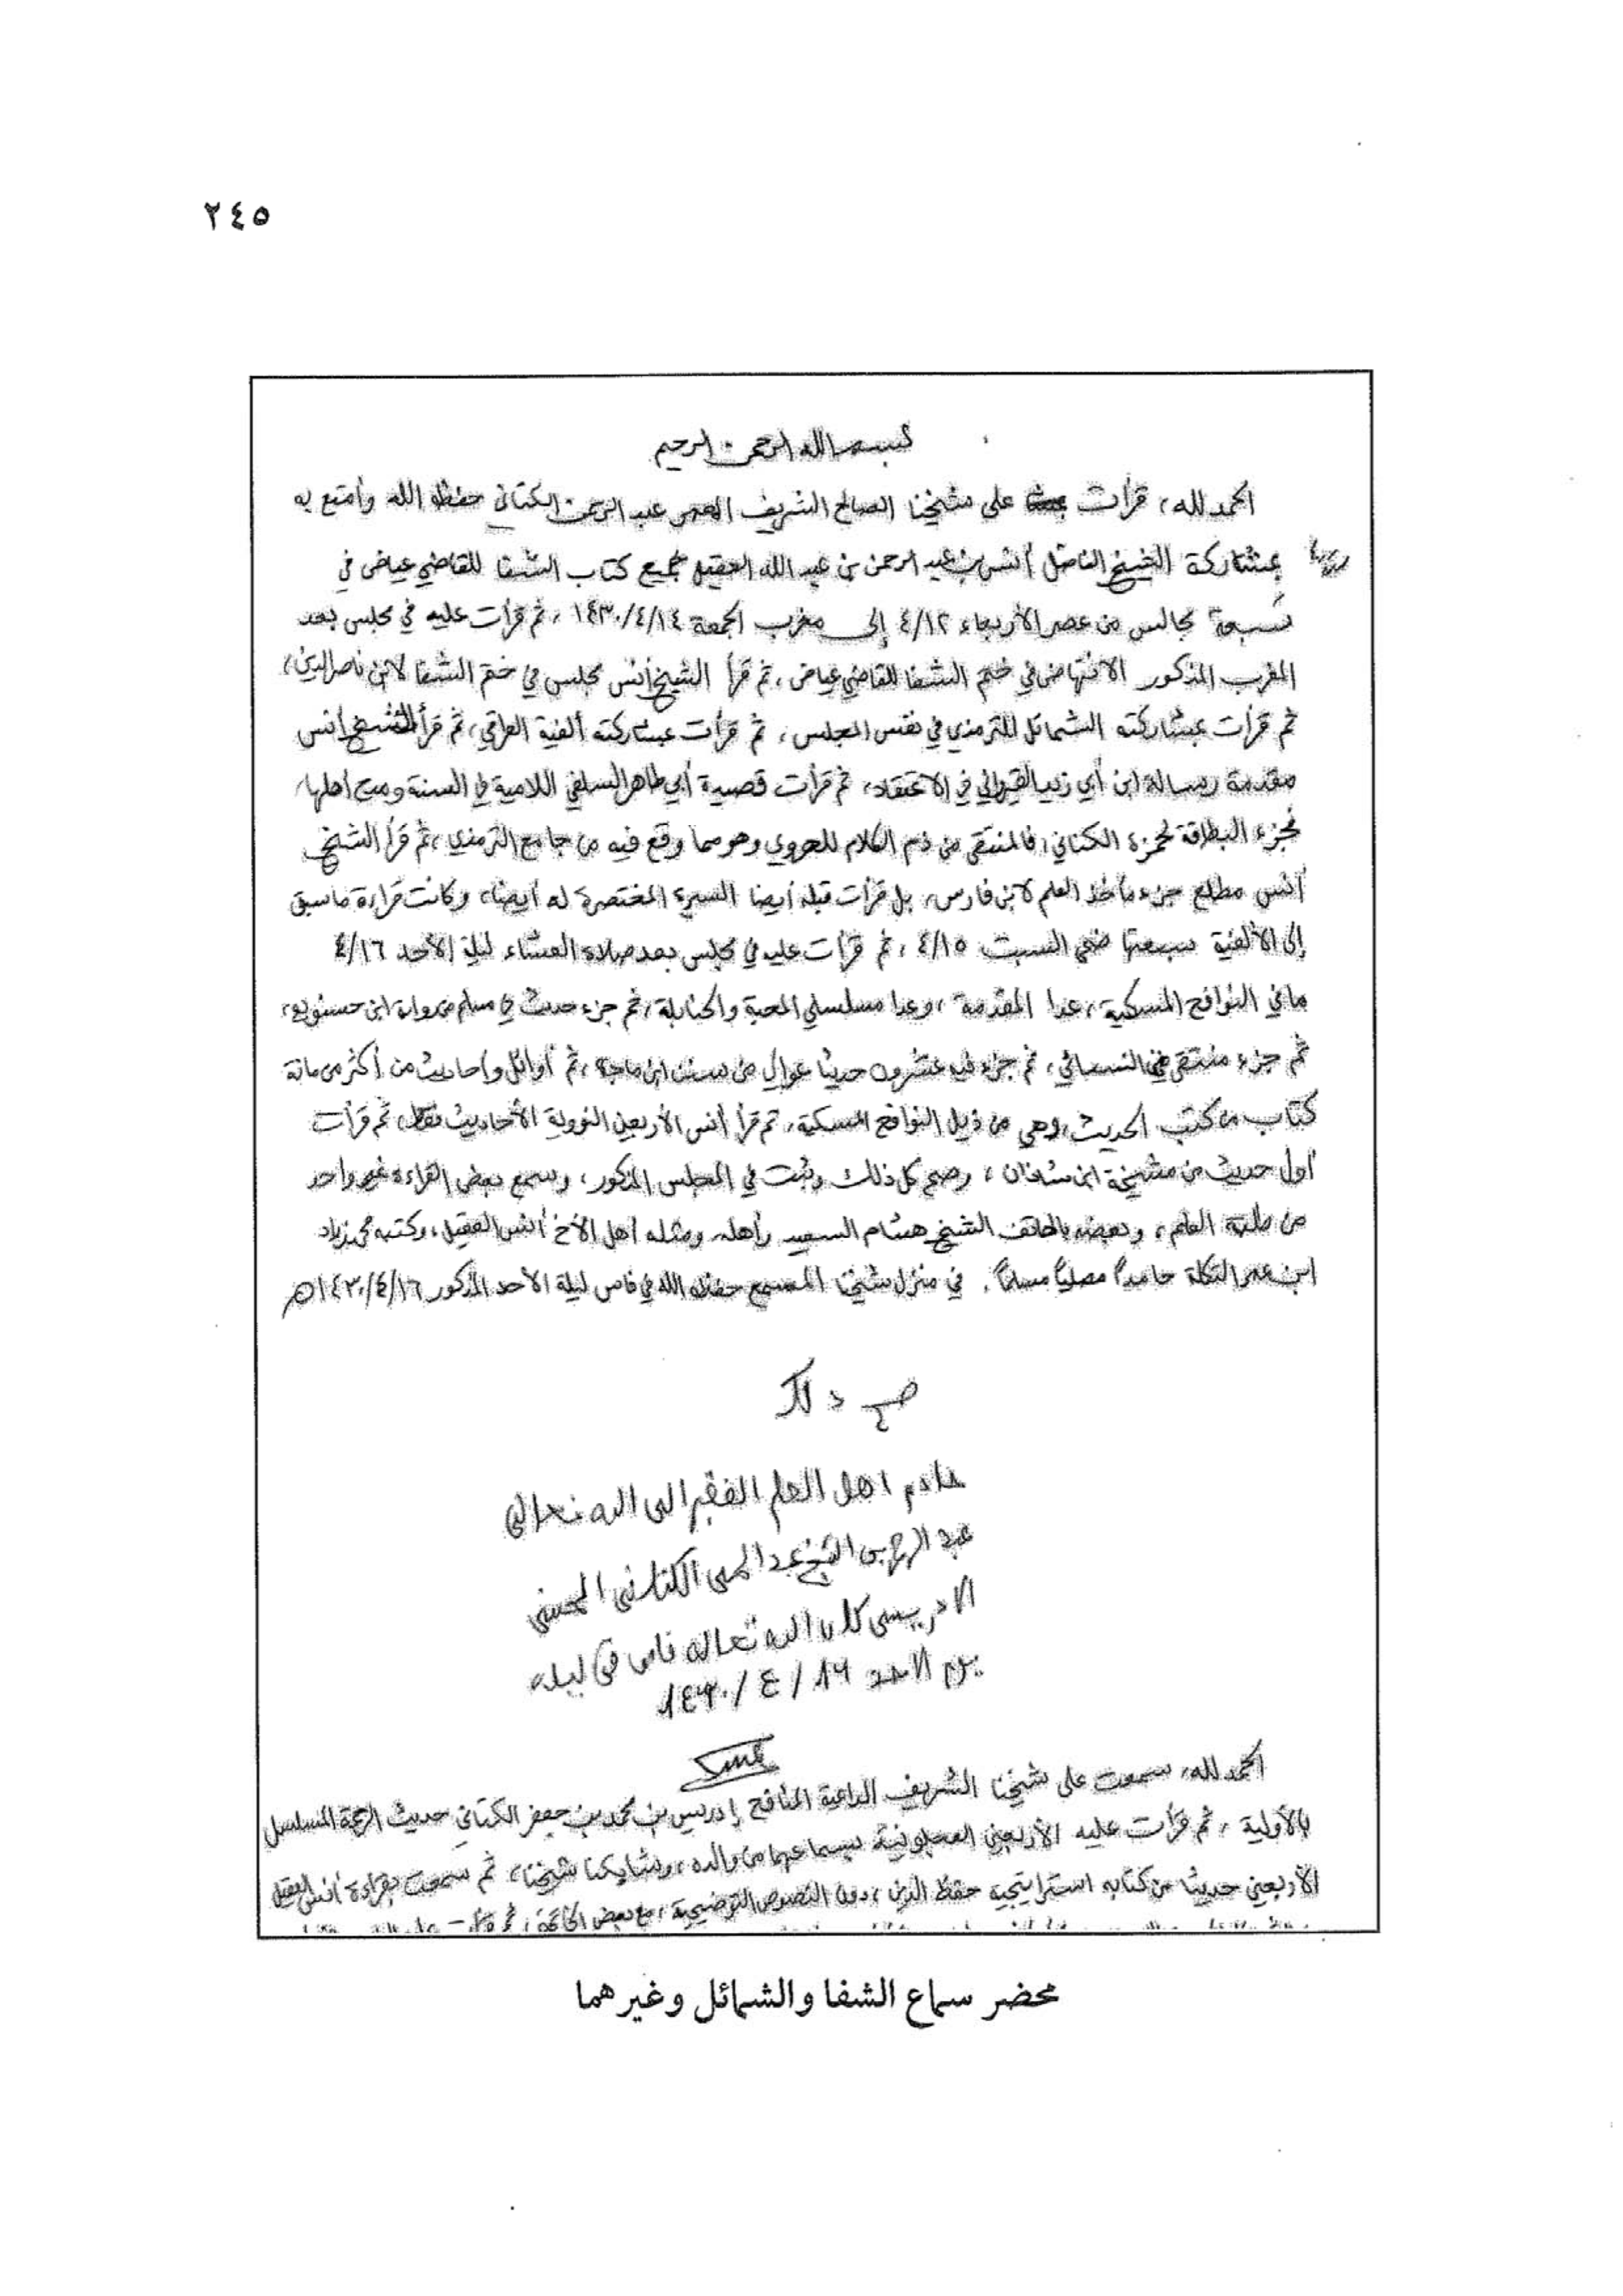 ٢٤٥
بسم الله الرحمن الرحيم
الحمد لله، قرأت على شيخنا الصالح الشريف المعمر عبد الرحمن الكتاني حفظه الله وأمتع به
بمشاركة الشيخ الفاضل أنس بن عبد الرحمن بن عبد الله العقيل جميع كتاب الشفا للقاضي عياض في
سبعة مجالس من عصر الأربعاء ٤/١٢ إلى مغرب الجمعة ١٤٣٠/٤/١٤، ثم قرأت عليه في مجلس بعد
المغرب المذكور الانتهاض في ختم الشفا للقاضي عياض، ثم قرأ الشيخ أنس مجلس في ختم الشفا لابن ناصر الدين،
ثم قرأت بمشاركته الشمائل للترمذي في نفس المجلس، ثم قرأت بمشاركته ألفية العراقي، ثم قرأ الشيخ أنس
مقدمة رسالة ابن أبي زيد القيرواني في الاعتقاد، ثم قرأت قصيدة أبي طاهر السلفي اللامية في السنة ومدح أهلها،
فجزء البطاقة لحمزة الكناني، فالمنتقى من ذم الكلام للهروي وهو مما وقع فيه من جامع الترمذي، ثم قرأ الشيخ
أنس مطلع جزء مأخذ العلم لابن فارس، بل قرأت قبله أيضا السيرة المختصرة له أيضا، وكانت قراءة ما سبق
إلى الألفية سبعتها ضحى السبت ٤/١٥، ثم قرأت عليه في مجلس بعد صلاة العشاء ليلة الأحد ٤/١٦
ما في النوافح المسكية، عدا المقدمة، وعدا مسلسلي المحبة والحنابلة، ثم جزء حديث في مسلم من رواية ابن حسنويه،
ثم جزء منتقى من النسائي، ثم جزء فيه عشرون حديثا عوالي من سنن ابن ماجة، ثم أوائل وأحاديث من أكثر من مائة
كتاب من كتب الحديث، وهي من ذيل النوافح المسكية، ثم قرأ أنس الأربعين النووية الأحاديث فقط، ثم قرأت
أول حديث من مشيخة ابن شاذان، وصح كل ذلك وثبت في المجلس المذكور، وسمع بعض القراءة غير واحد
من طلبة العلم، وبعضه بالهاتف الشيخ هشام السعيد وأهله، ومثله أهل الأخ أنس العقيل، وكتبه محمد زياد
ابن عمر التكلة حامداً مصلياً مسلماً. في منزل شيخنا المسمع حفظه الله في فاس ليلة الأحد المذكور ١٤٣٠/٤/١٦هـ
صح ذلك
خادم اهل العلم الفقير الى الله تعالى
عبد الرحمن بن الشيخ عبد الحي الكتاني الحسني
الادريسي كان الله تعالى له فاس في ليلة
يوم الاحد ١٦ / ٤ / ١٤٣٠
الحمد لله، سمعت على شيخنا الشريف الداعية المنافح إدريس بن محمد بن جعفر الكتاني حديث الرحمة المسلسل
بالأولية، ثم قرأت عليه الأربعين العجلونية بسماعها من والده، وشابكنا شيخنا، ثم سمعت بقراءة أنس العقيل
الأربعين حديثا من كتابه استراتيجية حفظ الدين، دون النصوص التوضيحية، مع بعض الخاتمة، ثم قرأت
محضر سماع الشفا والشمائل وغيرهما